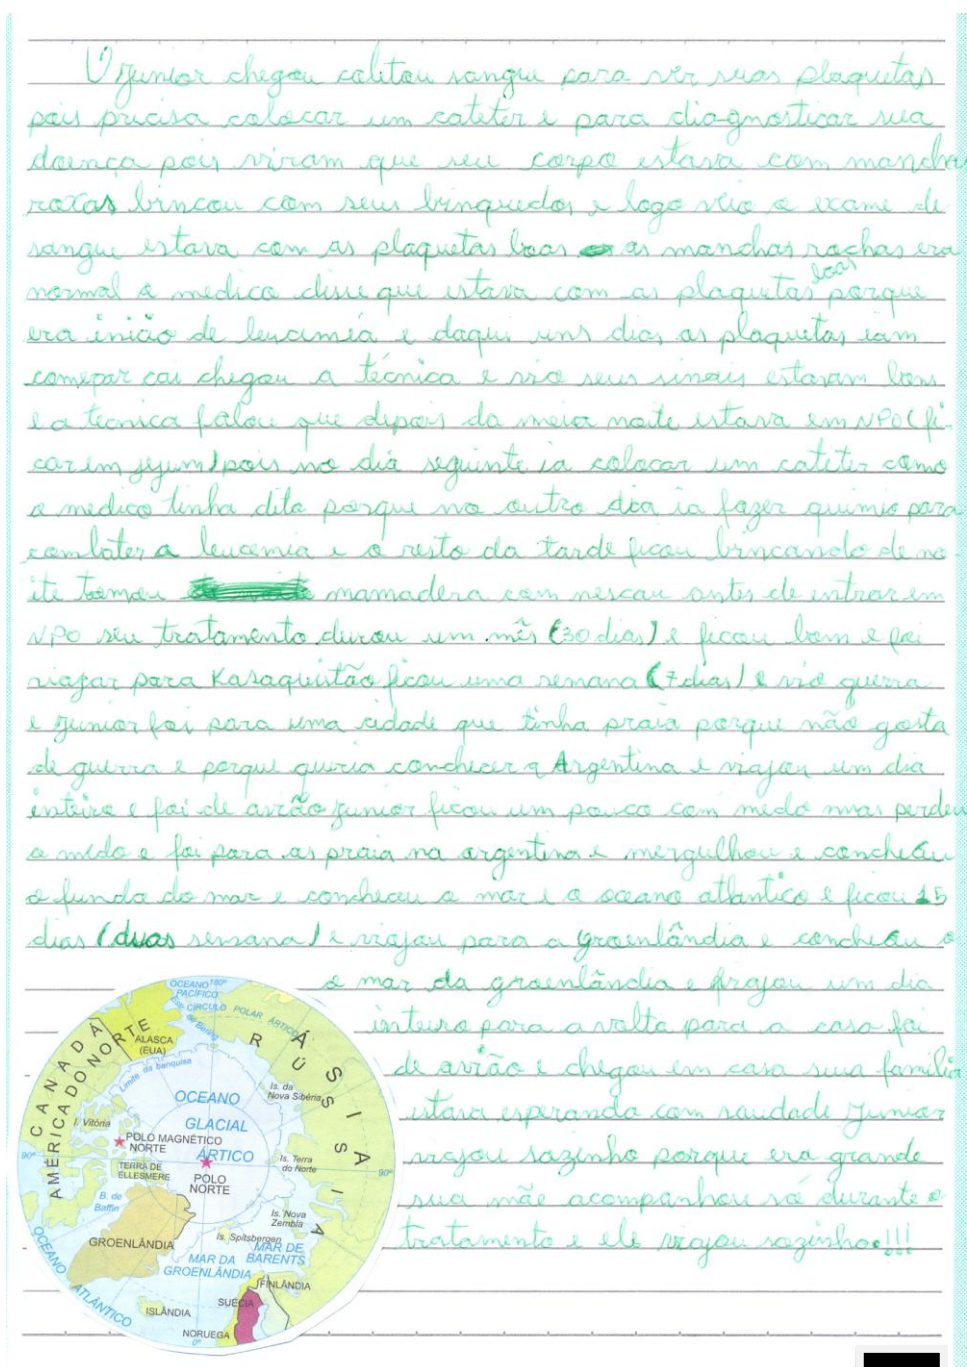 O junior chegou coletou sangue para ver suas plaquetas
pois precisa colocar um cateter e para diagnosticar sua
doença pois viram que seu corpo estava com manchas
roxas brincou com seus brinquedos e logo veio o exame de
sangue estava com as plaquetas boas as manchas rochas era
normal o medico disse que estava com as plaquetas boas porque
era inicio de leucemia e daqui uns dias as plaquetas iam
começar cai chegou a técnica e viu seus sinais estavam bons
e a tecnica falou que depois da meia noite estava em NPO (fi-
car em jejum) pois no dia seguinte ia colocar um cateter como
o medico tinha dito porque no outro dia ia fazer quimio para
combater a leucemia e o resto da tarde ficou brincando de no-
ite tomou mamadera com nescau antes de entrar em
NPO seu tratamento durou um mês (30 dias) e ficou bom e foi
viajar para Kasaquistão ficou uma semana (7 dias) e viu guerra
e junior foi para uma cidade que tinha praia porque não gosta
de guerra e porque queria conchecer a Argentina e viajou um dia
inteiro e foi de avião junior ficou um pouco com medo mas perdeu
o medo e foi para as praia na argentina e mergulhou e concheceu
o fundo do mar e concheceu o mar e o oceano atlantico e ficou 15
dias (duas semana) e viajou para a groenlândia e concheceu o
o mar da groenlândia e viajou um dia
inteiro para a volta para a casa foi
de avião e chegou em casa sua familia
estava esperando com saudade Junior
viajou sozinho porque era grande
sua mãe acompanhou só durante o
tratamento e ele viajou sozinho.!!!
OCEANO PACÍFICO
180º
CÍRCULO POLAR ÁRTICO
CANADÁ
AMÉRICA DO NORTE
ALASCA (EUA)
Limite da banquisa
RÚSSIA
ÁSIA
Is. da Nova Sibéria
OCEANO GLACIAL ÁRTICO
I. Vitória
POLO MAGNÉTICO NORTE
POLO NORTE
Is. Terra do Norte
90º
90º
TERRA DE ELLESMERE
B. de Baffin
Is. Nova Zembla
Is. Spitsbergen
GROENLÂNDIA
MAR DA GROENLÂNDIA
MAR DE BARENTS
FINLÂNDIA
OCEANO ATLÂNTICO
ISLÂNDIA
SUÉCIA
NORUEGA
0º